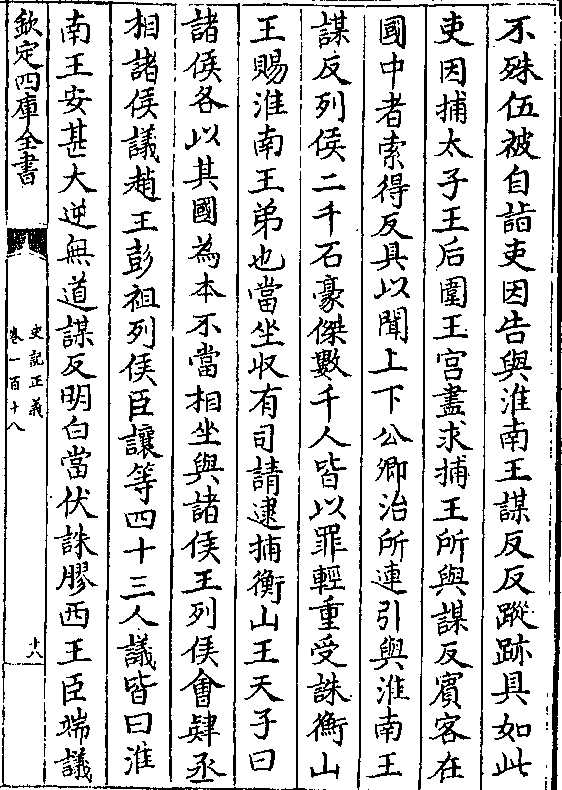 不殊伍被自詣吏因告與淮南王謀反反蹤跡具如此
吏因捕太子王后圍王宮盡求捕王所與謀反賓客在
國中者索得反具以聞上下公卿治所連引與淮南王
謀反列侯二千石豪傑數千人皆以罪輕重受誅衡山
王賜淮南王弟也當坐收有司請逮捕衡山王天子曰
諸侯各以其國為本不當相坐與諸侯王列侯會肄丞
相諸侯議趙王彭祖列侯臣讓等四十三人議皆曰淮
南王安甚大逆無道謀反明白當伏誅膠西王臣端議
欽定四庫全書
史記正義
卷一百十八
十八